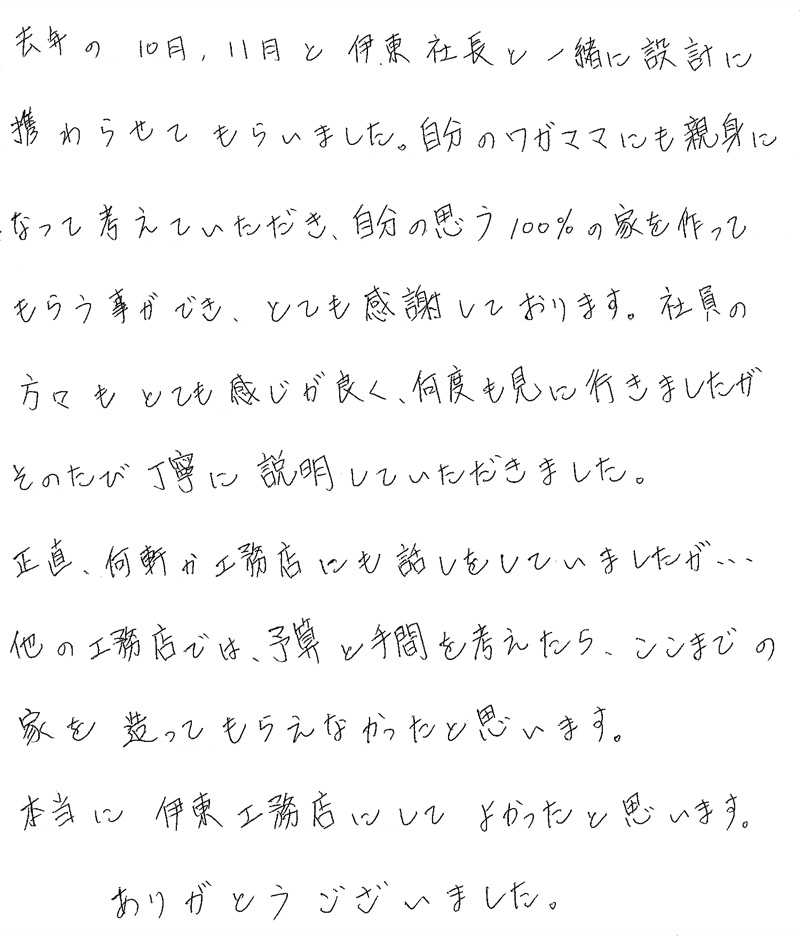 去年の 10月, 11月と 伊東社長と一緒に設計に
携わらせてもらいました。自分のワガママにも親身に
なって考えていただき、自分の思う100%の家を作って
もらう事ができ、とても感謝しております。社員の
方々もとても感じが良く、何度も見に行きましたが
そのたび丁寧に説明していただきました。
正直、何軒か工務店にも話しをしていましたが...
他の工務店では、予算と手間を考えたら、ここまでの
家を造ってもらえなかったと思います。
本当に 伊東工務店にしてよかったと思います。
ありがとうございました。